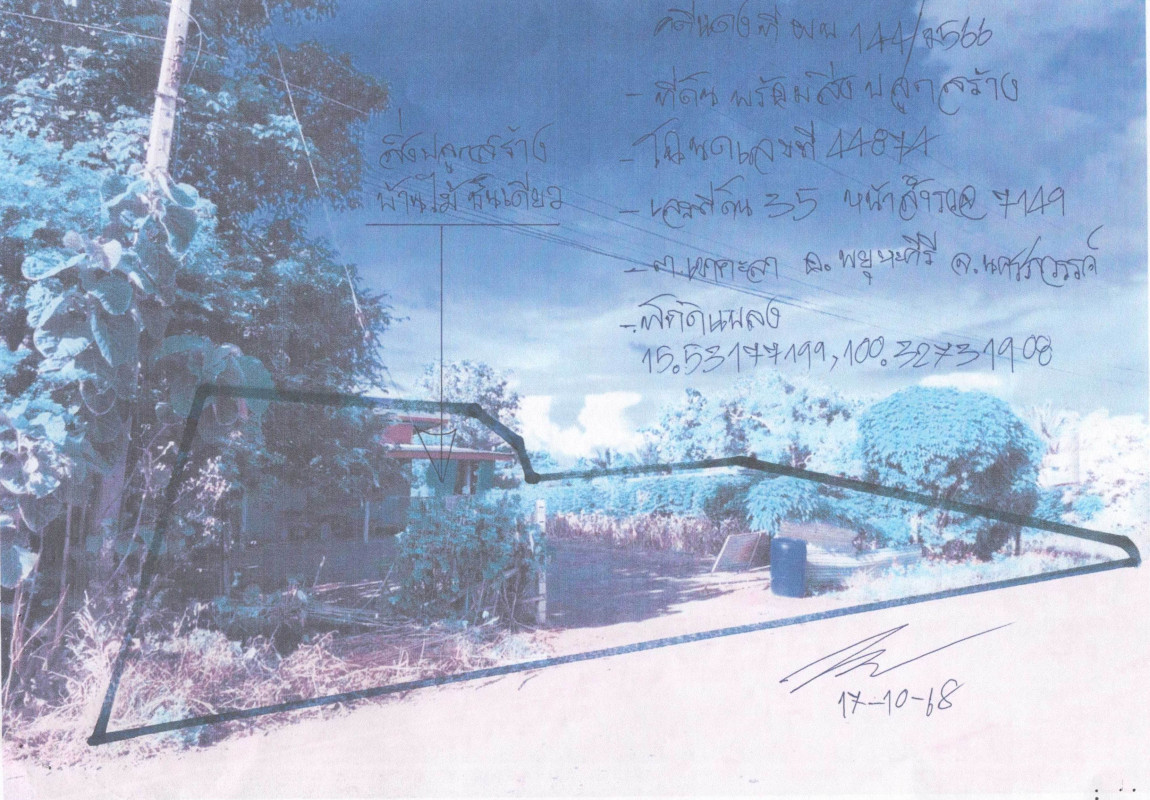 คดีแดงที่ ผบ 144/2566
- ที่ดิน พร้อมสิ่งปลูกสร้าง
- โฉนดเลขที่ 44874
- เลขที่ดิน 35 หน้าสำรวจ 7149
- ต.เขาทอง อ.พยุหะคีรี จ.นครสวรรค์
- พิกัดแปลง
15.53177199,100.32731908
สิ่งปลูกสร้าง
บ้านไม้ ชั้นเดียว
17-10-68